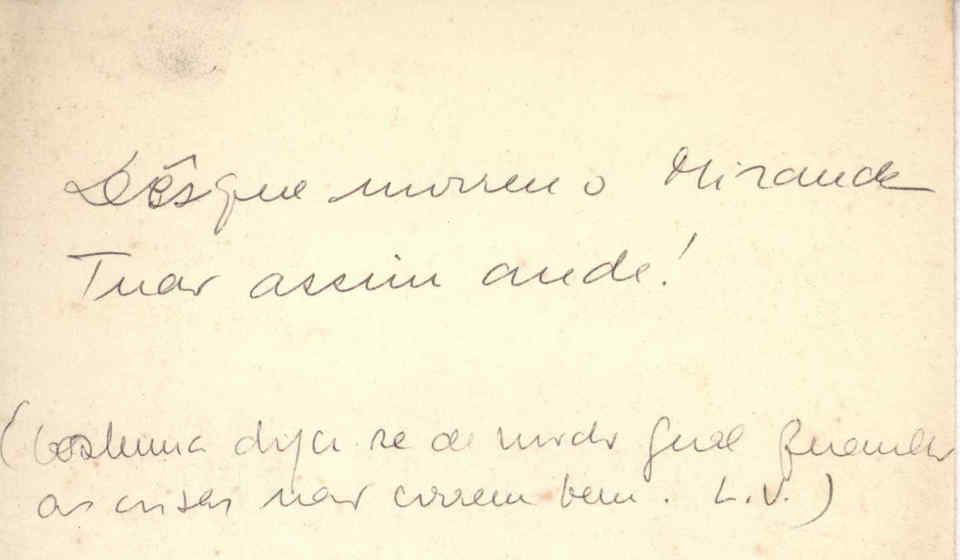 Dêsque morreu o Miranda
Tudo assim anda!
(Costuma dizer-se de modo geral quando
as coisas não correm bem. L.V.)